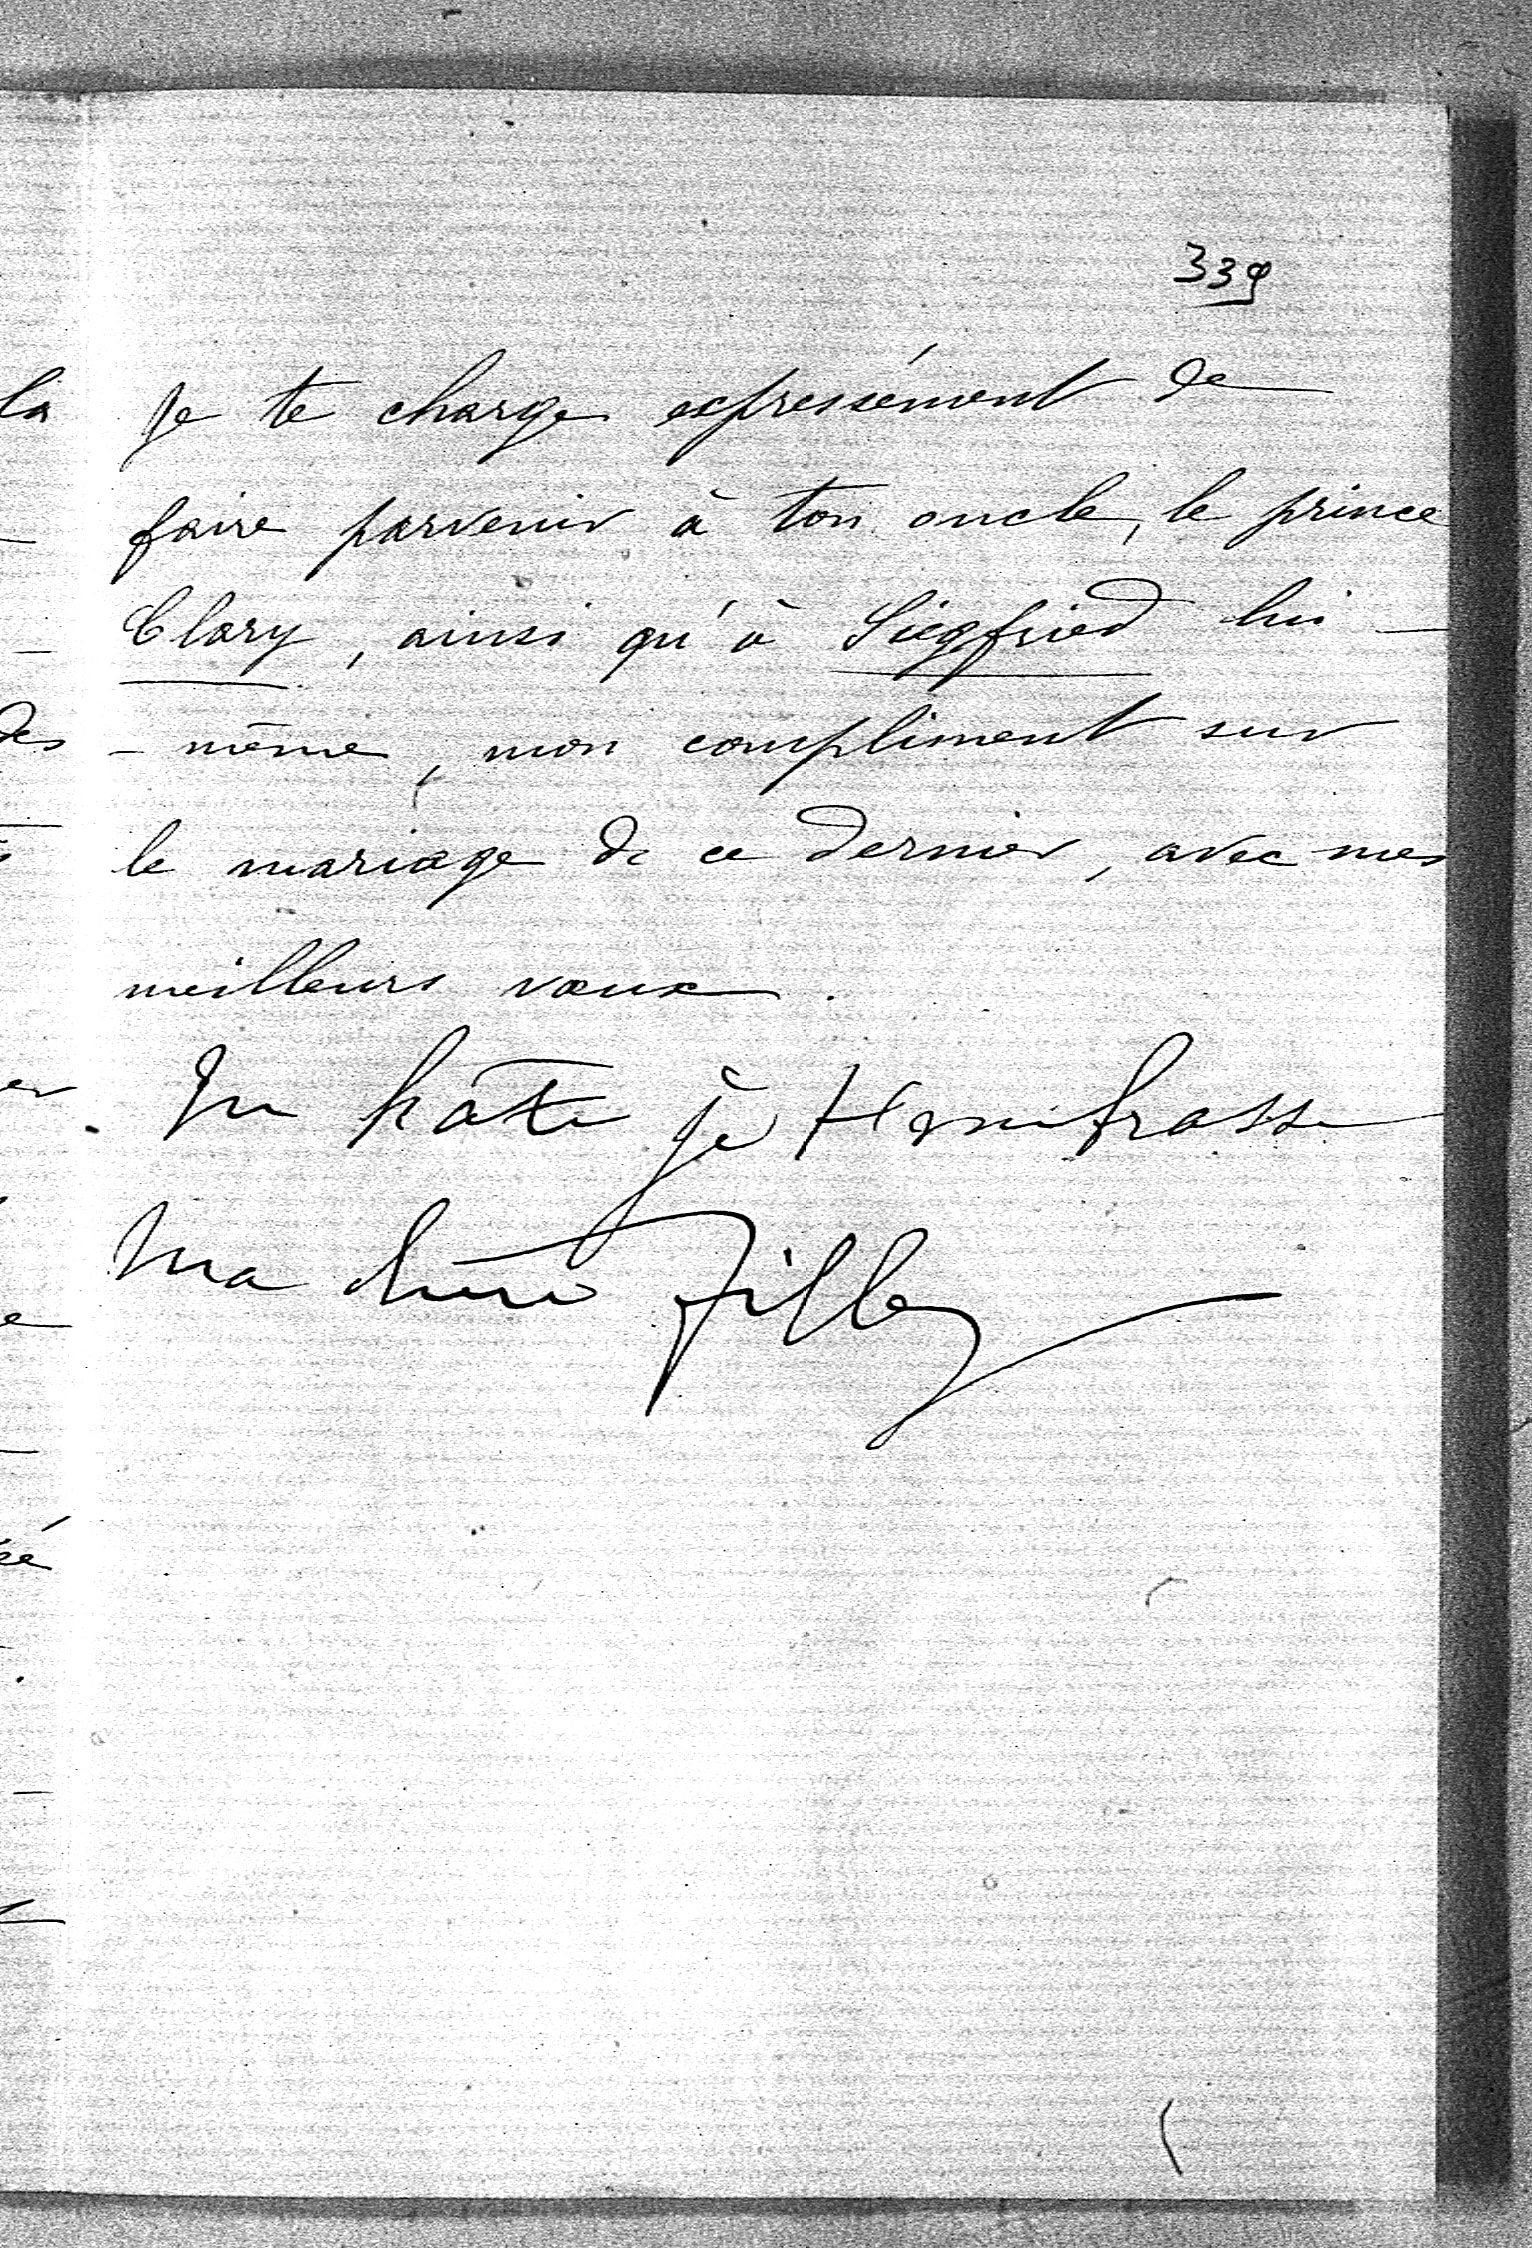 339
Je te charge expressément de
faire parvenir à ton oncle, le prince
Clary, ainsi qu'à Siegfried lui-
-même, mon compliment sur
le mariage de ce dernier, avec mes
meilleurs vœux.
En hâte je t'embrasse
Ma chère fille